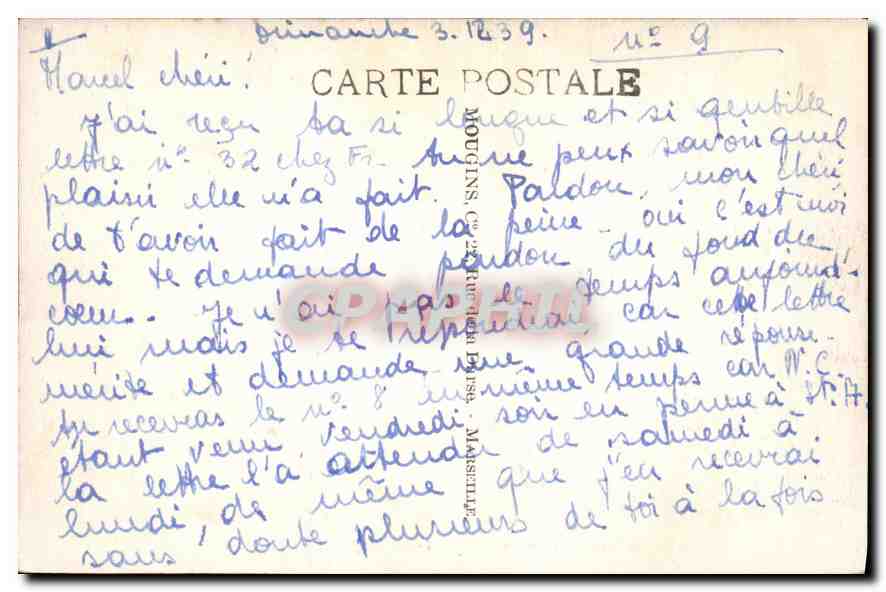 Dimanche 3.12 39. n° 9
Marcel chéri!
CARTE POSTALE
J'ai reçu ta si longue et si gentille
lettre n° 32 chez Fr. tu ne peux savoir quel
plaisir elle m'a fait. Pardon, mon chéri
de t'avoir fait de la peine - oui c'est moi
qui te demande pardon du fond du
coeur. Je n'ai pas le temps aujourd'-
hui mais je te répondrai, car cette lettre
mérite et demande une grande réponse.
tu recevras le n° 8 en même temps car N.C.
étant venu vendredi soir en perme à St. A.
la lettre l'a attendu de samedi à
lundi, de même que j'en recevrai
sans doute plusieurs de toi à la fois
MOUGINS, Cie 27, Rue Jean Dersé. MARSEILLE
CPAPHIL